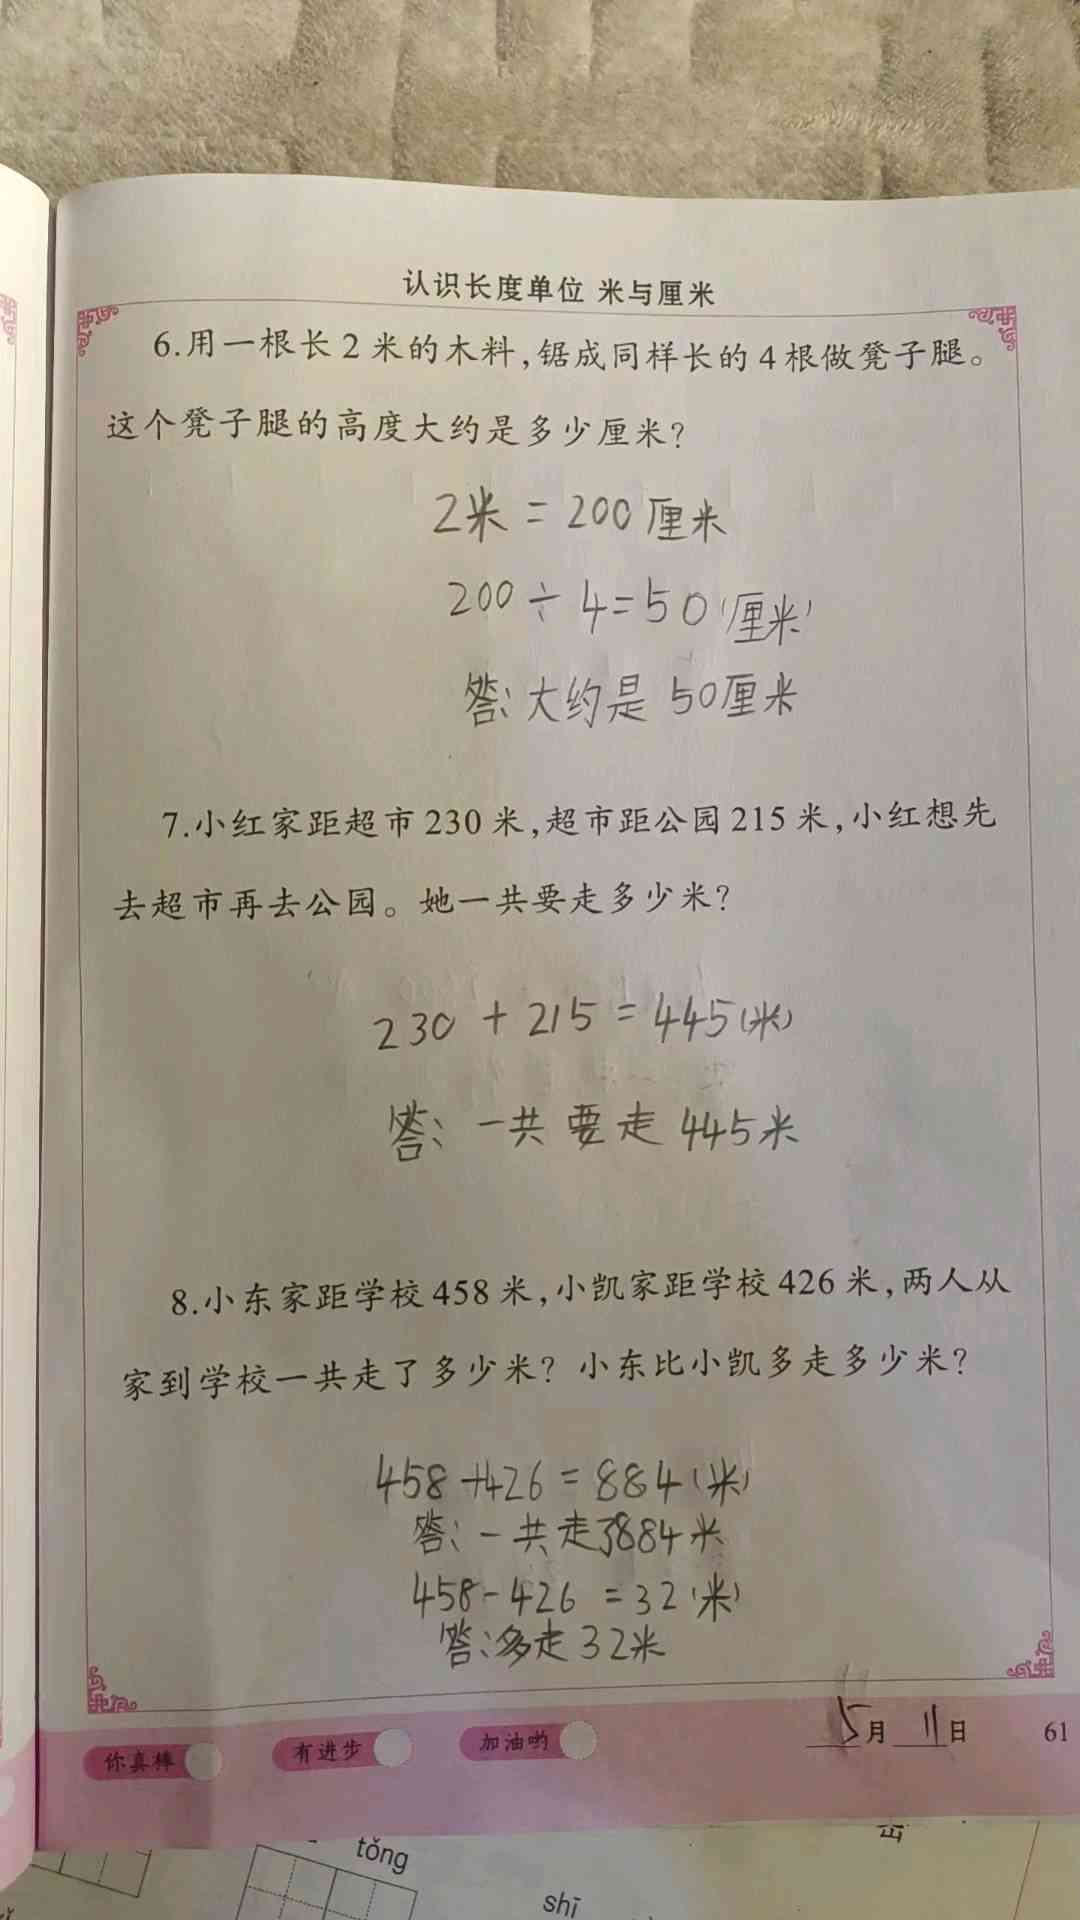 认识长度单位 米与厘米
6.用一根长2米的木料,锯成同样长的4根做凳子腿。
这个凳子腿的高度大约是多少厘米?
2米=200厘米
200÷4=50(厘米)
答:大约是50厘米
7.小红家距超市230米,超市距公园215米,小红想先
去超市再去公园。她一共要走多少米?
230+215=445(米)
答:一共要走445米
8.小东家距学校458米,小凯家距学校426米,两人从
家到学校一共走了多少米?小东比小凯多走多少米?
458+426=884(米)
答:一共走了884米
458-426=32(米)
答:多走32米
你真棒 有进步 加油哟 5月11日 61
tǒng
shī